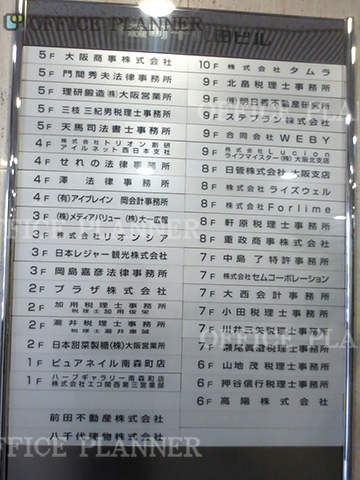 OFFICE PLANNER
田ビル
5F 大阪商事株式会社
5F 門間秀夫法律事務所
5F 理研鍛造(株)大阪営業所
5F 三枝三紀男税理士事務所
5F 天馬司法書士事務所
4F 株式会社トリオン創研
アイルネット西日本支社
4F せれの法律事務所
4F 澤 法律事務所
4F (有)アイブレイン 岡会計事務所
3F (株)メディアバリュー (株)大一広報
3F 株式会社リオンシア
3F 日本レジャー観光株式会社
3F 岡島嘉彦法律事務所
2F プラザ株式会社
2F 加用税理士事務所
税理士加用俊栄
2F 瀧井税理士事務所
税理士瀧井康誠
2F 日本甜菜製糖(株)大阪営業所
1F ピュアネイル南森町店
1F ハーブギャラリー南森町店
株式会社エコ関西第三営業部
前田不動産株式会社
八千代建物株式会社
10F 株式会社タムラ
9F 北畠税理士事務所
9F (株)明日香不動産研究所
9F ステップラン株式会社
9F 合同会社WEBY
9F 株式会社Lucion
ライフマイスター(株)大阪北支店
8F 日管株式会社大阪支店
8F 株式会社ライズウェル
8F 株式会社Forlime
8F 軒原税理士事務所
8F 重政商事株式会社
7F 中島了特許事務所
7F 株式会社セムコーポレーション
7F 大西会計事務所
7F 小田税理士事務所
7F 川井三矢税理士事務所
7F 瀬尾眞澄税理士事務所
6F 山地茂税理士事務所
6F 押谷信行税理士事務所
6F 高陽株式会社